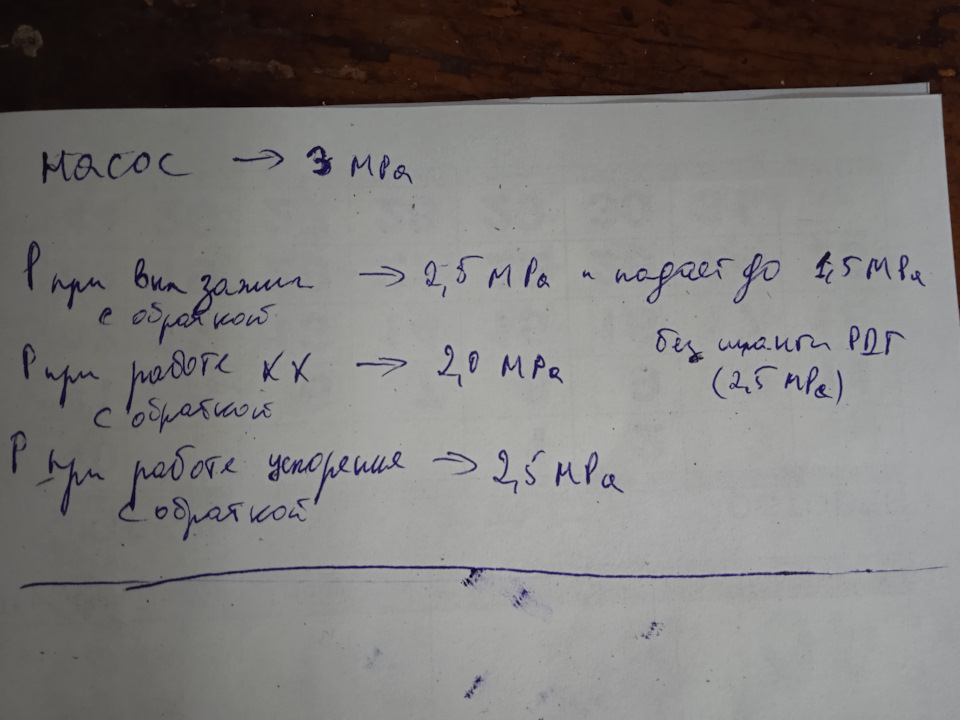 Насос → 3 MPa
P при вкл зажиг → 2,5 MPa и падает до 1,5 MPa
с обраткой
P при работе XX → 2,0 MPa
без шланги РДТ
(2,5 MPa)
с обраткой
P при работе ускорения → 2,5 MPa
с обраткой